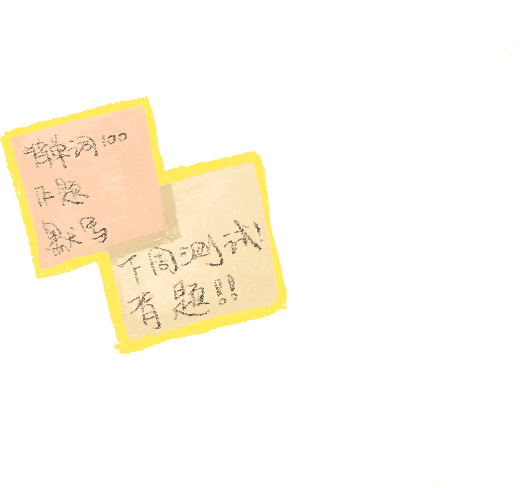 背单词100
下题
默写
下周测试
有题!!